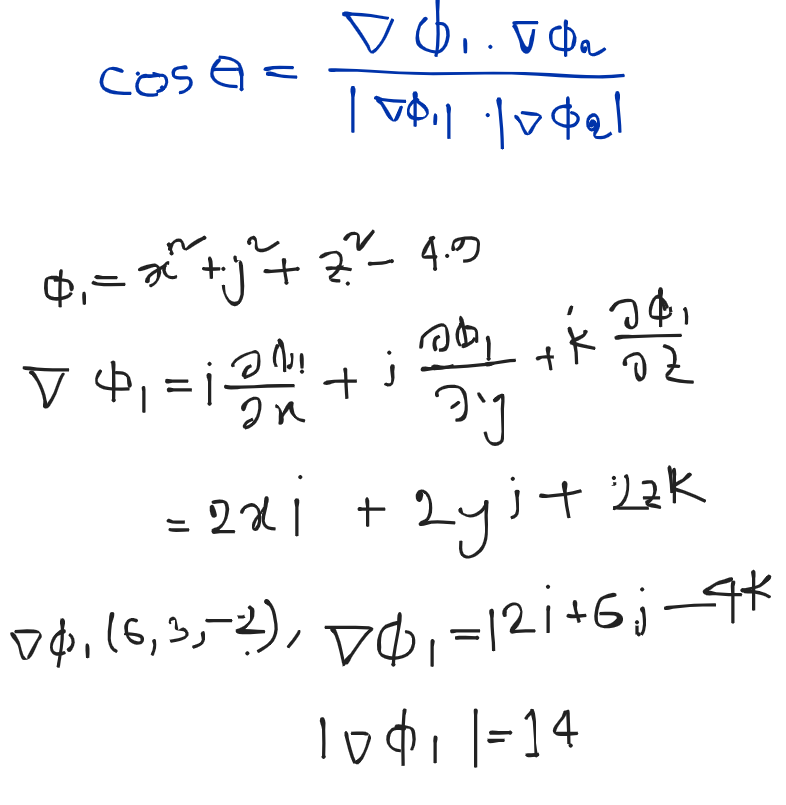 cos θ = ∇ϕ₁ . ∇ϕ₂ / |∇ϕ₁| . |∇ϕ₂|
ϕ₁ = x² + y² + z² - 49
∇ϕ₁ = i ∂ϕ₁/∂x + j ∂ϕ₁/∂y + k ∂ϕ₁/∂z
= 2xi + 2yj + 2zk
∇ϕ₁ (6, 3, -2), ∇ϕ₁ = 12i + 6j - 4k
|∇ϕ₁| = 14